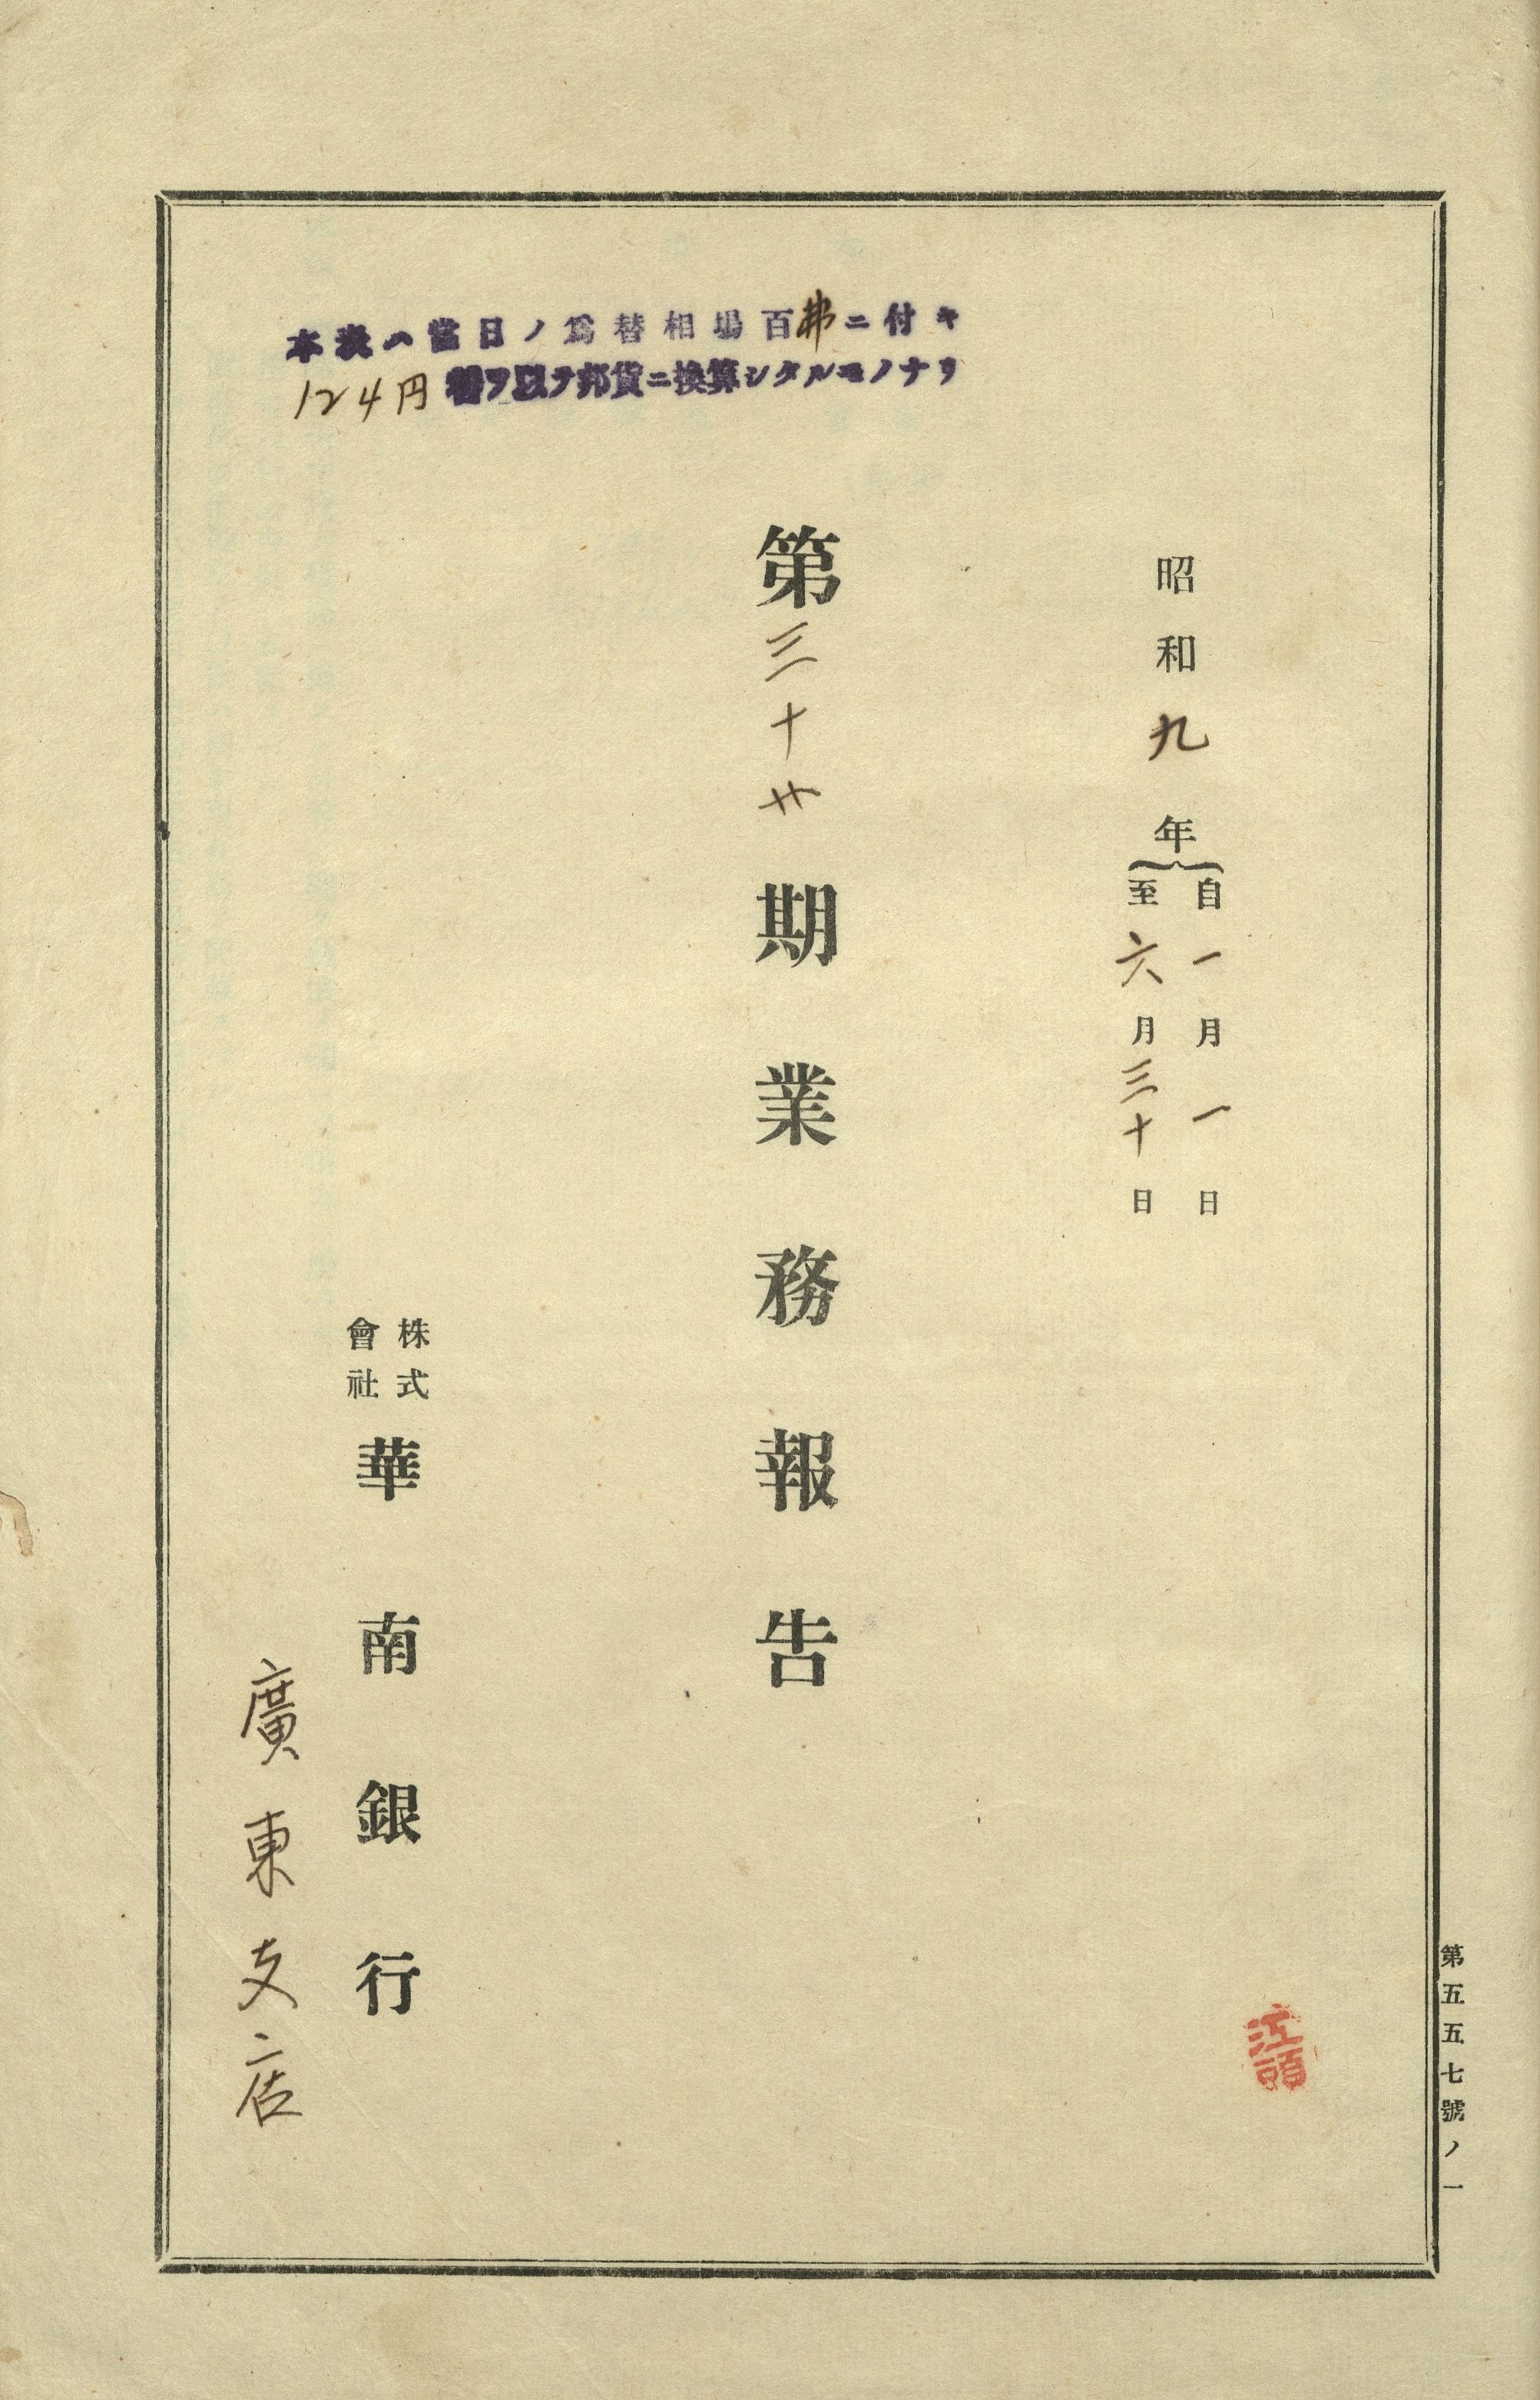 本表ハ當日ノ爲替相場百弗ニ付キ
124円替ヲ以テ邦貨ニ換算シタルモノナリ
昭和九年
自一月一日
至六月三十日
第三十期業務報告
株式
會社
華南銀行
廣東支店
江頭
第五五七號ノ一